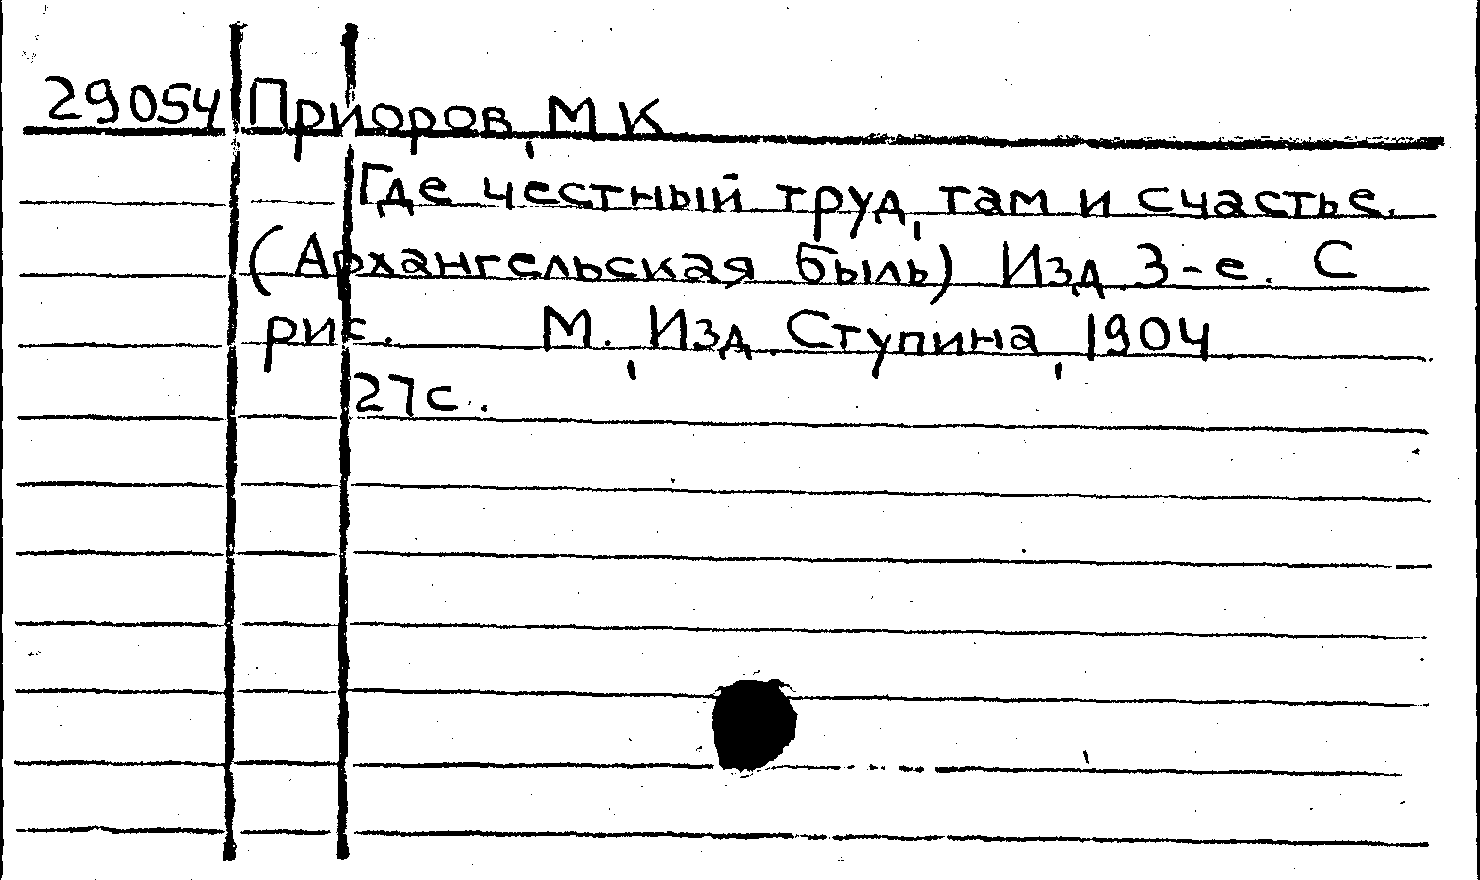 29054 Приоров, М К
Где честный труд, там и счастье.
(Архангельская быль) Изд. 3-е. С
рис. М., Изд. Ступина, 1904
27с.